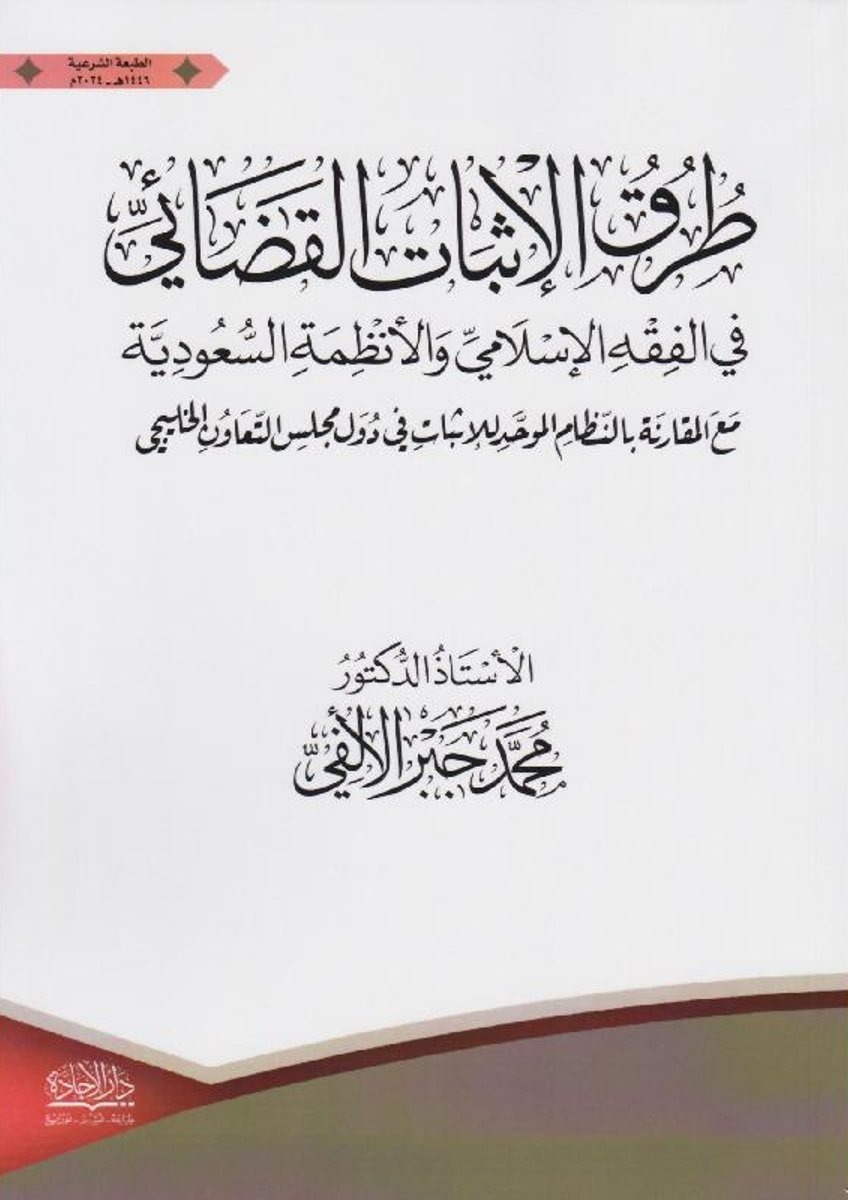 الطبعة الشرعية
١٤٤٦هـ - ٢٠٢٤م
طُرُقُ الإِثْبَاتِ القَضَائِيِّ
فِي الفِقْهِ الإِسْلَامِيِّ وَالأَنْظِمَةِ السُّعُودِيَّة
مَعَ المقارنَة بالنّظامِ الموحَّدِ للإثباتِ في دُوَل مجلسِ التّعَاوُنِ الخليجي
الأُسْتَاذُ الدُّكتُورُ
مُحَمَّد جَبْر الأَلْفِيّ
دار الإجادة
طباعة - نشر - توزيع